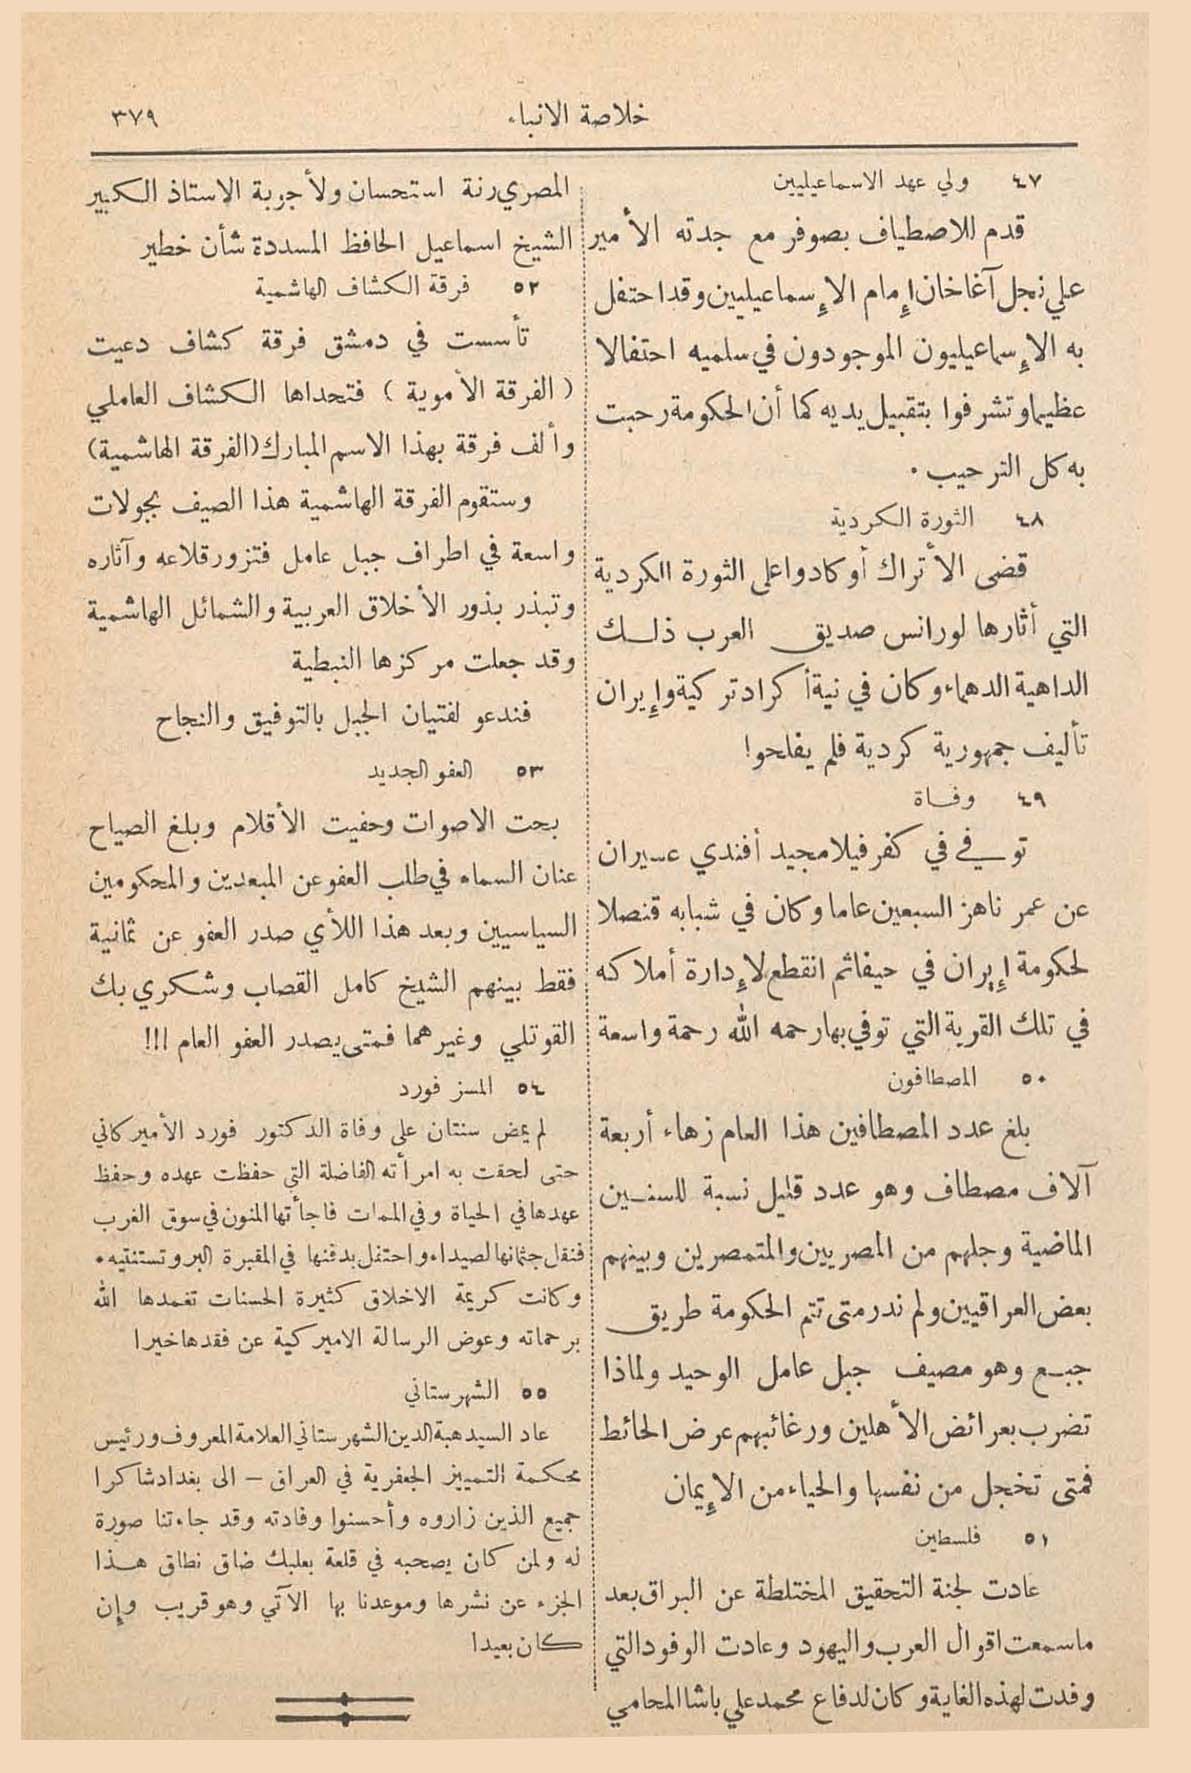 خلاصة الانباء
٣٧٩
٤٧ ولي عهد الاسماعيليين
قدم للاصطياف بصوفر مع جدته الأمير
علي نجل آغا خان إمام الإسماعيليين وقد احتفل
به الإسماعيليون الموجودون في سلميه احتفالا
عظيما وتشرفوا بتقبيل يديه كما أن الحكومة رحبت
به كل الترحيب .
٤٨ الثورة الكردية
قضى الأتراك أو كادوا على الثورة الكردية
التي أثارها لورانس صديق العرب ذلك
الداهية الدهماء وكان في نية أكراد تركية وإيران
تأليف جمهورية كردية فلم يفلحوا!
٤٩ وفاة
توفي في كفر فيلا مجيد أفندي عسيران
عن عمر ناهز السبعين عاما وكان في شبابه قنصلا
لحكومة إيران في حيفا ثم انقطع لإدارة أملاكه
في تلك القرية التي توفي بها رحمه الله رحمة واسعة
٥٠ المصطافون
بلغ عدد المصطافين هذا العام زهاء أربعة
آلاف مصطاف وهو عدد قليل نسبة للسنين
الماضية وجلهم من المصريين والمتمصرين وبينهم
بعض العراقيين ولم ندر متى تتم الحكومة طريق
جبع وهو مصيف جبل عامل الوحيد ولماذا
تضرب بعرائض الأهلين ورغائبهم عرض الحائط
فمتى تخجل من نفسها والحياء من الإيمان
٥١ فلسطين
عادت لجنة التحقيق المختلطة عن البراق بعد
ما سمعت اقوال العرب واليهود وعادت الوفود التي
وفدت لهذه الغاية وكان لدفاع محمد علي باشا المحامي
المصري رنة استحسان ولأجوبة الاستاذ الكبير
الشيخ اسماعيل الحافظ المسددة شأن خطير
٥٢ فرقة الكشاف الهاشمية
تأسست في دمشق فرقة كشاف دعيت
( الفرقة الأموية ) فتحداها الكشاف العاملي
وألف فرقة بهذا الاسم المبارك (الفرقة الهاشمية)
وستقوم الفرقة الهاشمية هذا الصيف بجولات
واسعة في اطراف جبل عامل فتزور قلاعه وآثاره
وتبذر بذور الأخلاق العربية والشمائل الهاشمية
وقد جعلت مركزها النبطية
فندعو لفتيان الجبل بالتوفيق والنجاح
٥٣ العفو الجديد
بحت الاصوات وحفيت الأقلام وبلغ الصياح
عنان السماء في طلب العفو عن المبعدين والمحكومين
السياسيين وبعد هذا اللأي صدر العفو عن ثمانية
فقط بينهم الشيخ كامل القصاب وشكري بك
القوتلي وغيرهما فمتى يصدر العفو العام !!!
٥٤ المسز فورد
لم يمض سنتان على وفاة الدكتور فورد الأميركاني
حتى لحقت به امرأته الفاضلة التي حفظت عهده وحفظ
عهدها في الحياة وفي الممات فاجأتها المنون في سوق الغرب
فنقل جثمانها لصيداء واحتفل بدفنها في المقبرة البروتستنتيه .
وكانت كريمة الاخلاق كثيرة الحسنات تغمدها الله
برحماته وعوض الرسالة الاميركية عن فقدها خيرا
٥٥ الشهرستاني
عاد السيد هبة الدين الشهرستاني العلامة المعروف ورئيس
محكمة التمييز الجعفرية في العراق — الى بغداد شاكرا
جميع الذين زاروه وأحسنوا وفادته وقد جاءتنا صورة
له ولمن كان يصحبه في قلعة بعلبك ضاق نطاق هذا
الجزء عن نشرها وموعدنا بها الآتي وهو قريب وإن
كان بعيدا